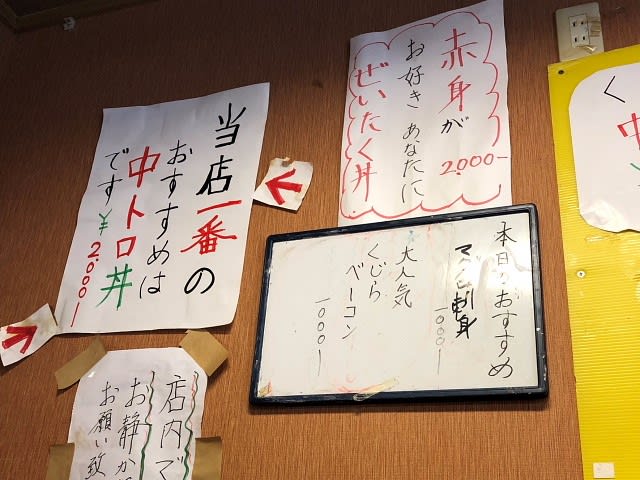 赤身が
お好き あなたに
ぜいたく丼
2000-
当店一番の
おすすめは
中トロ丼
です ¥2.000-
本日のおすすめ
刺身
1000-
大人気
くじら
ベーコン
1000-
店内で
お静かに
お願い致
く